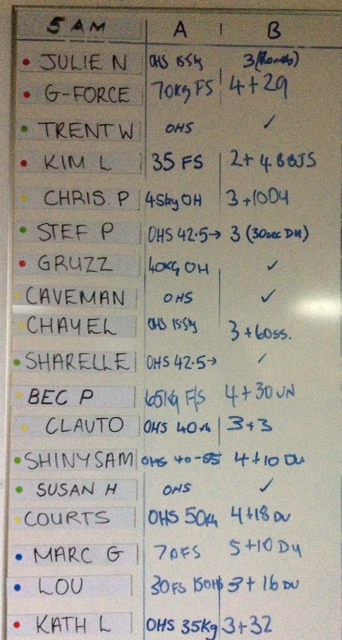 5 AM A B
JULIE N OHS 15kg 3 (Rounds)
G-FORCE 70kg FS 4+29
TRENT W OHS ✓
KIM L 35 FS 2+4 BBJS
CHRIS. P 45kg OH 3+10DU
STEF P OHS 42.5→ 3 (30sec DU)
GRUZZ 40KG OH ✓
CAVEMAN OHS ✓
CHAYEL OHS 15kg 3+60ss.
SHARELLE OHS 42.5→ ✓
BEC P 65kg F/S 4+30 UN
CLAUTO OHS 40 3+3
SHINYSAM OHS 40-55 4+10 DU
SUSAN H OHS ✓
COURTS OHS 50kg 4+18 DU
MARC G 70FS 5+10 DU
LOU 30FS 15OHS 3+16 DU
KATH L OHS 35Kg 3+32